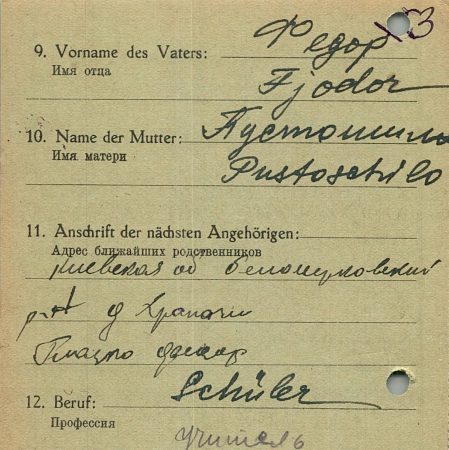 13
9. Vorname des Vaters: Федор
Имя отца
Fjodor
10. Name der Mutter: Пустошило
Имя матери
Pustoschilo
11. Anschrift der nächsten Angehörigen:
Адрес ближайших родственников
Киевская об
д
Федор
12. Beruf: Schüler
Профессия
Учитель